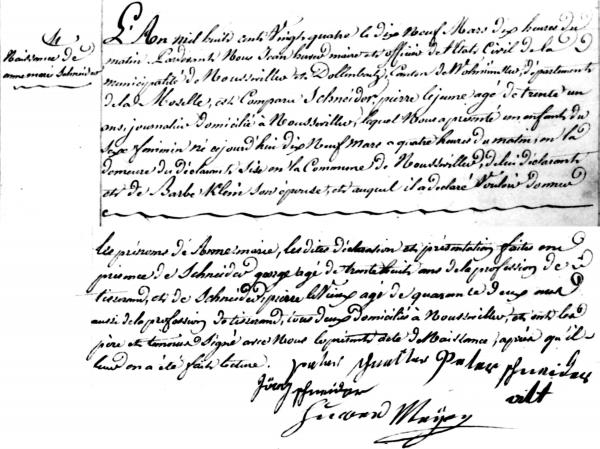 4
Naissance de
anne marie Schneider
L'An mil huit cent Vingt quatre le dix Neuf Mars dix heures du
matin Pardevant Nous Jean maire et officier de l'etat Civil de la
municipalité de Nousseviller et Dollenbach, Canton de Volmunster, département
de la Moselle, est Comparu Schneider pierre le jeune agé de trente un
ans, journalier domicilié à Nousseviller, lequel Nous a presenté un enfant du
Sexe feminin né cejourd'hui dix Neuf Mars a quatre heures du matin, en la
demeure du déclarant Sise en la Commune de Nousseviller, de lui déclarant
et de Barbe Klein Son épouse, et auquel il a déclaré Vouloir donner
les prénoms de Anne marie, les dites déclaration et présentation faites en
présence de Schneider george agé de trente huit ans de la profession de
tisserand, et de Schneider pierre le Vieux agé de quarante deux ans
aussi de la profession de tisserand, tous deux domiciliés à Nousseviller, et ont les
père et temoins Signé avec Nous le présent acte de Naissance, après qu'il
leur en a été fait lecture.
Peter Schneider
Jörg Schneider
alt